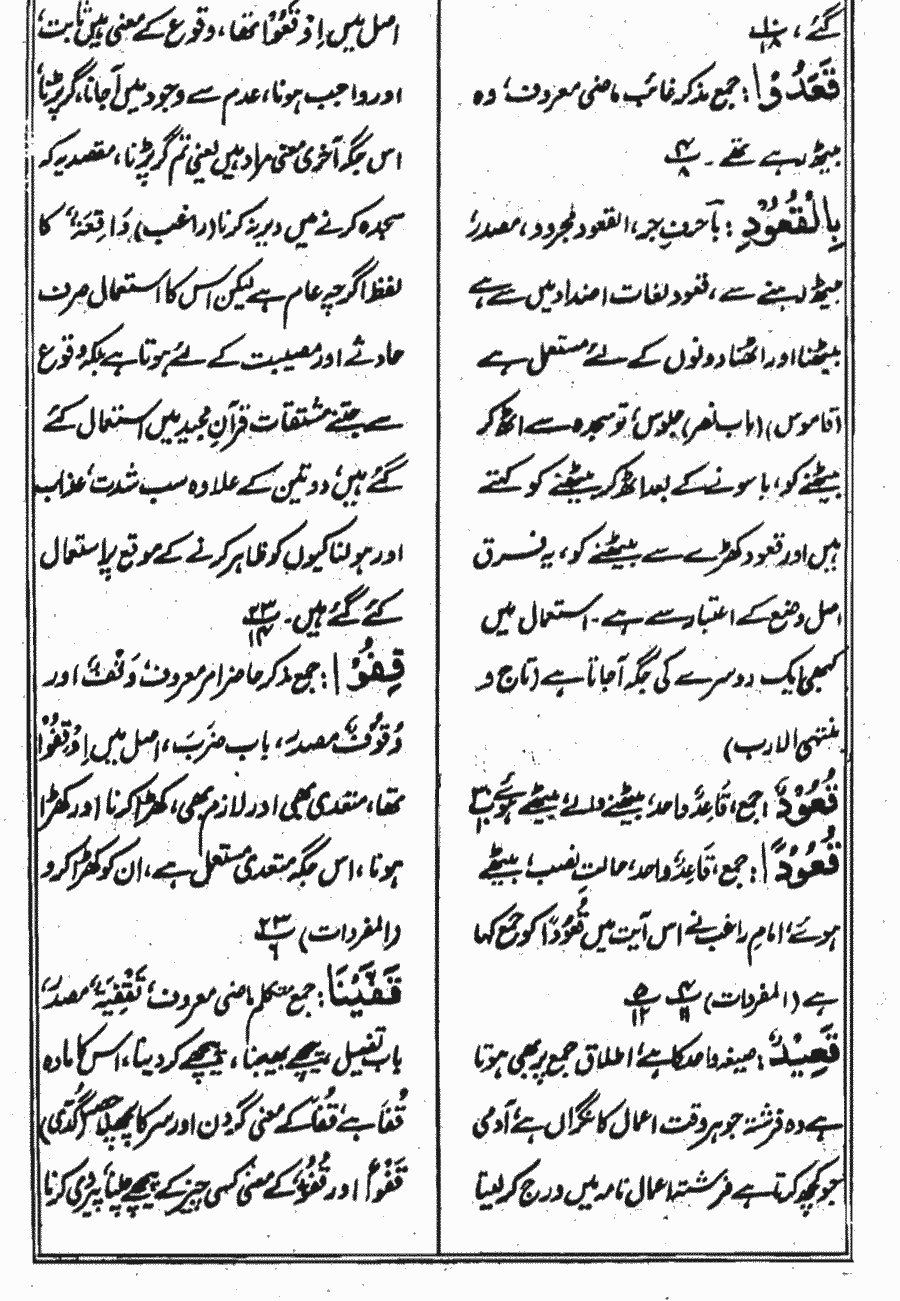 گئے، ۱۰/۱۸
قَعَدُوْا: جمع مذکر غائب ماضی معروف، وہ
بیٹھ رہے تھے۔ ۴/۸
بِالْقُعُوْدِ: بآ حرفِ جر، القعود مجرور، مصدر،
بیٹھ رہنے سے، قعود لغات اضداد میں سے ہے
بیٹھنا اور اٹھنا دونوں کے لئے مستعمل ہے
(قاموس) (باب نصر) جلوس، تو سجدہ سے اٹھ کر
بیٹھنے کو، یا سونے کے بعد اٹھ کر بیٹھنے کو کہتے
ہیں اور قعود کھڑے سے بیٹھنے کو، یہ فرق
اصل وضع کے اعتبار سے ہے۔ استعمال میں
کبھی ایک دوسرے کی جگہ آجاتا ہے (تاج و
منتہی الارب)
قُعُوْدٌ: جمع، قَاعِدٌ واحد، بیٹھنے والے، بیٹھے ہوئے
قُعُوْدًا: جمع، قَاعِدٌ واحد، حالت نصب، بیٹھے
ہوئے، امام راغب نے اس آیت میں قُعُوْدًا کو جمع کہا
ہے (المفردات) ۴/۱۱ ۵/۱۲
قَعِیْدٌ: صیغہ واحد کا ہے، اطلاق جمع پر بھی ہوتا
ہے وہ فرشتہ جو ہر وقت اعمال کا نگراں ہے، آدمی
جو کچھ کرتا ہے فرشتہ اعمال نامہ میں درج کر لیتا
اصل میں اِوْقَعُوْا تھا، وقوع کے معنی ہیں ثابت
اور واجب ہونا، عدم سے وجود میں آجانا، گر پڑنا
اس جگہ آخری معنی مراد ہیں یعنی تم گر پڑنا، مقصد یہ کہ
سجدہ کرنے میں دیر نہ کرنا (راغب) وَاقِعَۃٌ کا
لفظ اگرچہ عام ہے لیکن اس کا استعمال صرف
حادثے اور مصیبت کے لئے ہوتا ہے بلکہ وقوع
سے جتنے مشتقات قرآن مجید میں استعمال کئے
گئے ہیں، دو تین کے علاوہ سب شدت، عذاب
اور ہولناکیوں کو ظاہر کرنے کے موقع پر استعمال
کئے گئے ہیں۔ ۲۳/۱۴
قِفُوْا: جمع مذکر حاضر امر معروف، وَقْفٌ اور
وُقُوْفٌ مصدر، باب ضَرَبَ، اصل میں اِوْقِفُوْا
تھا، متعدی بھی اور لازم بھی، کھڑا کرنا اور کھڑا
ہونا، اس جگہ متعدی مستعمل ہے، ان کو کھڑا کرو
(المفردات) ۲۳/۶
قَفَّیْنَا: جمع متکلم ماضی معروف، تَقْفِیَۃٌ مصدر،
باب تفعیل، پیچھے بھیجنا، پیچھے کر دینا، اس کا مادہ
قُفَا ہے، قُفَا کے معنی گردن اور سر کا پچھلا حصہ (گُدّی)
قَفْوٌ اور قُفُوٌّ کے معنی کسی چیز کے پیچھے چلنا، پیروی کرنا